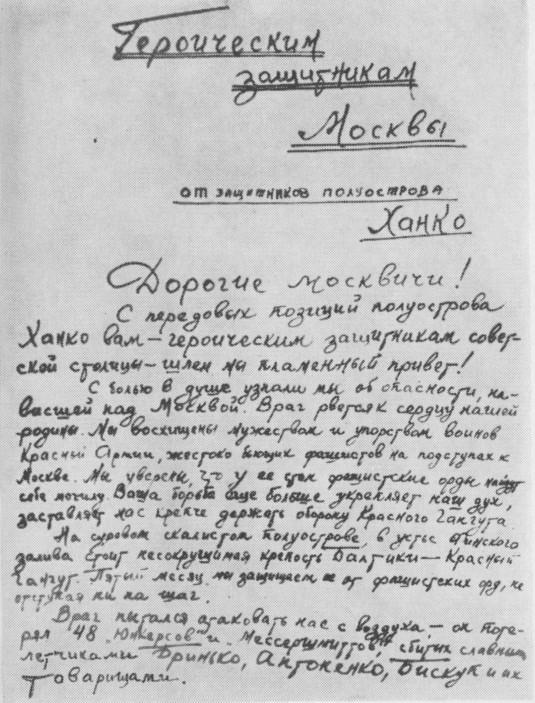 Героическим
защитникам
Москвы
от защитников полуострова
Ханко
Дорогие москвичи!
С передовых позиций полуострова
Ханко вам — героическим защитникам совет-
ской столицы — шлем мы пламенный привет!
С болью в душе узнали мы об опасности, на-
висшей над Москвой. Враг рвется к сердцу нашей
родины. Мы восхищены мужеством и упорством воинов
Красной Армии, жестоко бьющих фашистов на подступах к
Москве. Мы уверены, что у ее стен фашистские орды найдут
себе могилу. Ваша борьба еще больше укрепляет наш дух,
заставляет нас крепче держать оборону Красного Гангута.
На суровом скалистом полуострове, в устье Финского
залива стоит несокрушимая крепость Балтики — Красный
Гангут. Пятый месяц мы защищаем ее от фашистских орд, не
отступая ни на шаг.
Враг пытался атаковать нас с воздуха — он поте-
рял 48 "Юнкерсов" и "Мессершмиттов", сбитых славными
летчиками Бринько, Антоненко, Бискуп и их
товарищами.